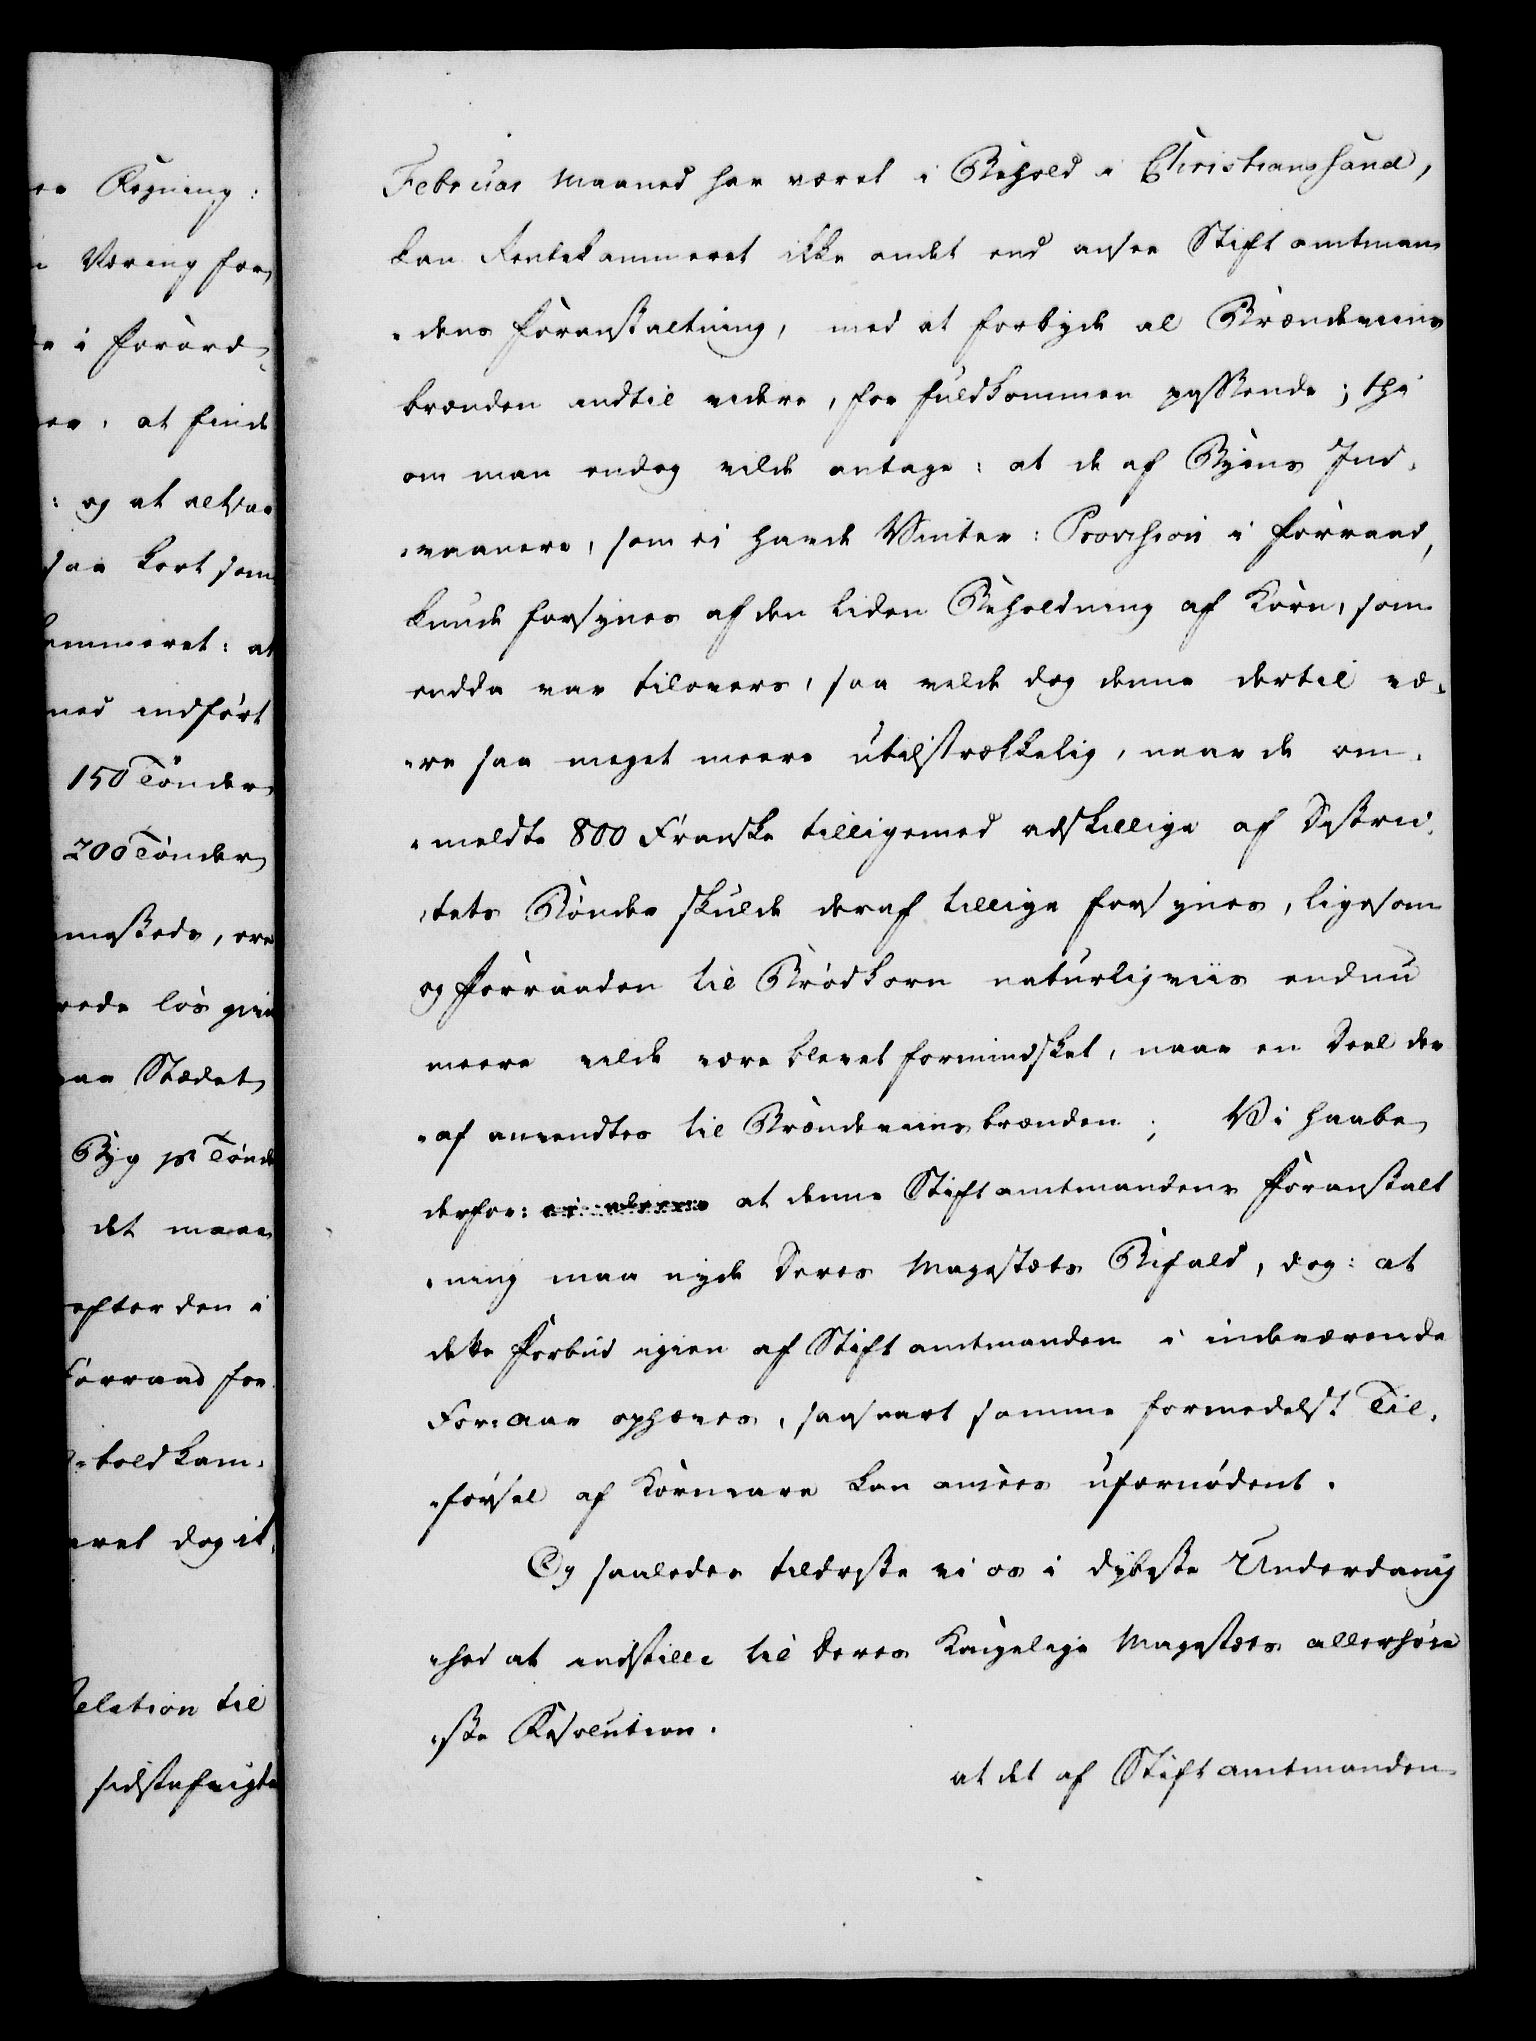 Regning:
Næring for
i Forord
at finde
: og at altsaa
saa kort som
kammeret: at
ned indført
150 Tönder
200 Tönder
rede løs givet
Stædet
Byg pr Tönde
det maae
efter den i
Forraad for
toldkam¬
dog it
Relation til
Februar Maaned har været i Behold i Christianssand,
kan Rentekammeret ikke andet end ansee Stiftamtman
¬dens Foranstaltning, med at forbyde al Brændeviins
brænden indtil videre, for fuldkommen passende; thi
om man endog vilde antage: at de af Byens Ind¬
¬vaanere, som ei havde Vinter: Provision i Forraad,
kunde forsynes af den liden Beholdning af Korn, som
endda var tilovers, saa vilde dog denne dertil væ¬
¬re saa meget meere utilstrækkelig, naar de om¬
¬meldte 800 Franske tilligemed adskillige af Distric¬
¬tets Bönder skulde deraf tillige forsynes, ligesom
og Forraaden til Brödkorn naturligviis endnu
meere vilde være blevet formindsket, naar en Deel der
¬af anvendtes til Brændeviinsbrænden; Vi haabe
derfor: at denne Stiftamtmandens Foranstalt
¬ning maa nyde Deres Majestæts Bifald, dog: at
dette Forbud igien af Stiftamtmanden i indeværende
For: aar ophæves, saasnart samme formedelst Til¬
¬försel af Kornvare kan ansees ufornödent.
Og saaledes tildriste vi os i dybeste Underdanig
¬hed at indstille til Deres Kongelige Majestæts allerhöie
¬ste Resolution.
at det af Stiftamtmanden